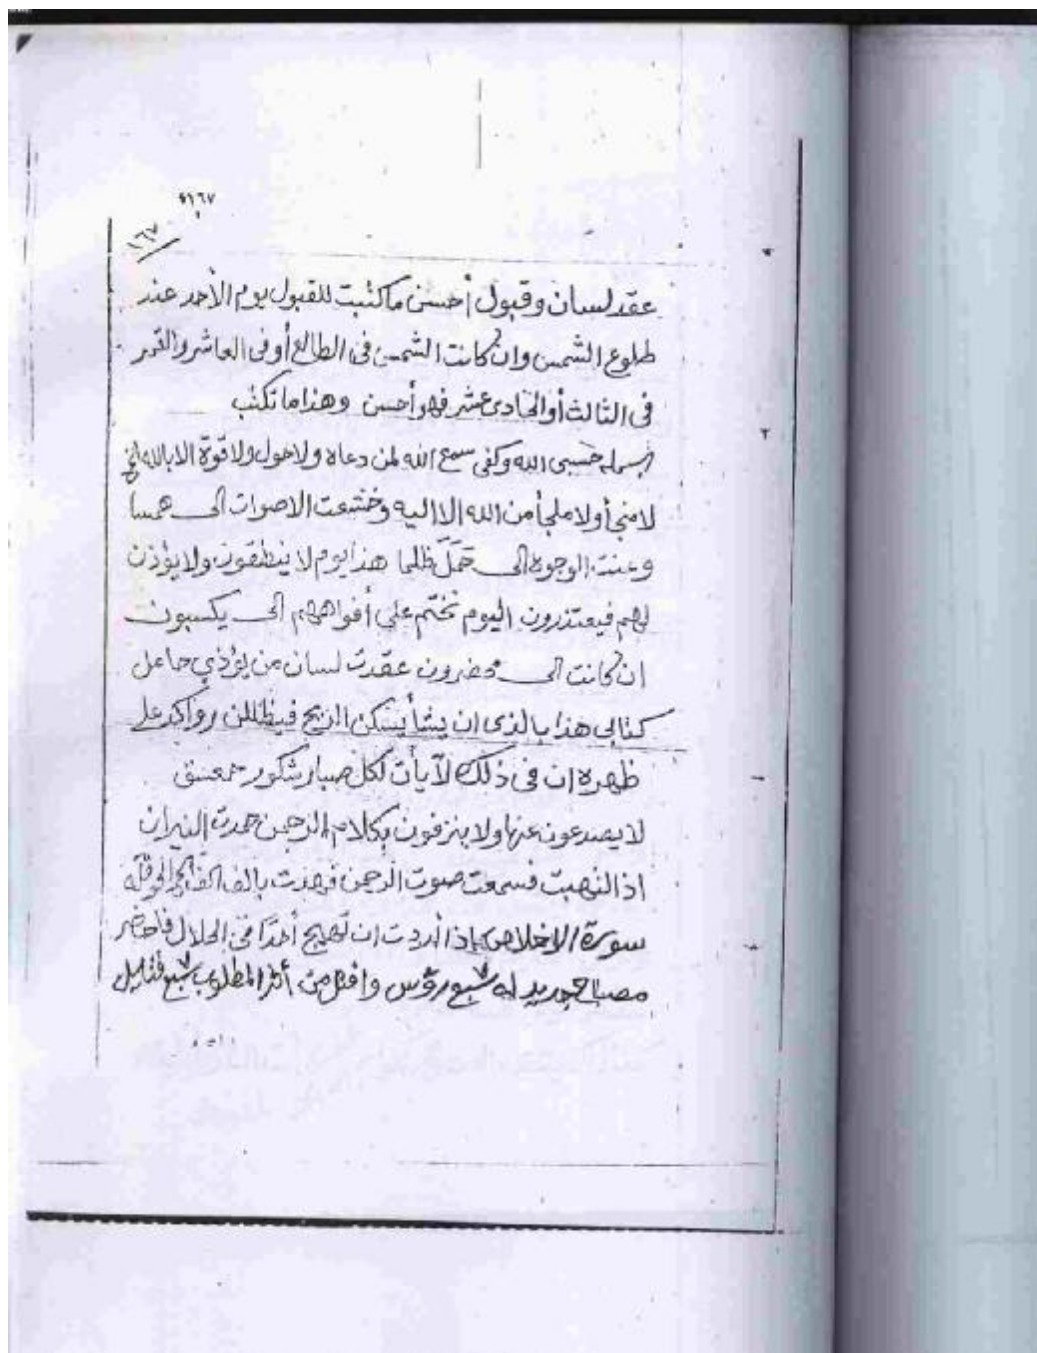 ١٦٧
١٦٧
عقد لسان وقبول أحسن ما كتبت للقبول يوم الأحد عند
طلوع الشمس وان كانت الشمس فى الطالع أو فى العاشر والقمر
فى الثالث أو الحادى عشر فهو أحسن وهذا ما تكتب
بسمله حسبى الله وكفى سمع الله لمن دعاه ولا حول ولا قوة الا بالله الخ
لا منجأ ولا ملجأ من الله الا اليه وخشعت الاصوات الى همسا
وعنت الوجوه الى حمل ظلما هذا يوم لا ينطقون ولا يؤذن
لهم فيعتذرون اليوم نختم على أفواههم الى يكسبون
ان كانت الى محضرون عقدت لسان من يؤذي حامل
كتابى هذا بالذى ان يشأ يسكن الريح فيظللن رواكد على
ظهره ان فى ذلك لآيات لكل صبار شكور حمعسق
لا يصدعون عنها ولا ينزفون بكلام الرحمن خمدت النيران
اذا التهبت فسمعت صوت الرحمن فهدت بالف الف
سورة الاخلاص اذا أردت ان تهيج أحدًا فى الحلال فاحضر
مصباح جديد له سبع رؤس وافتل من أثر المطلوب سبع فتايل